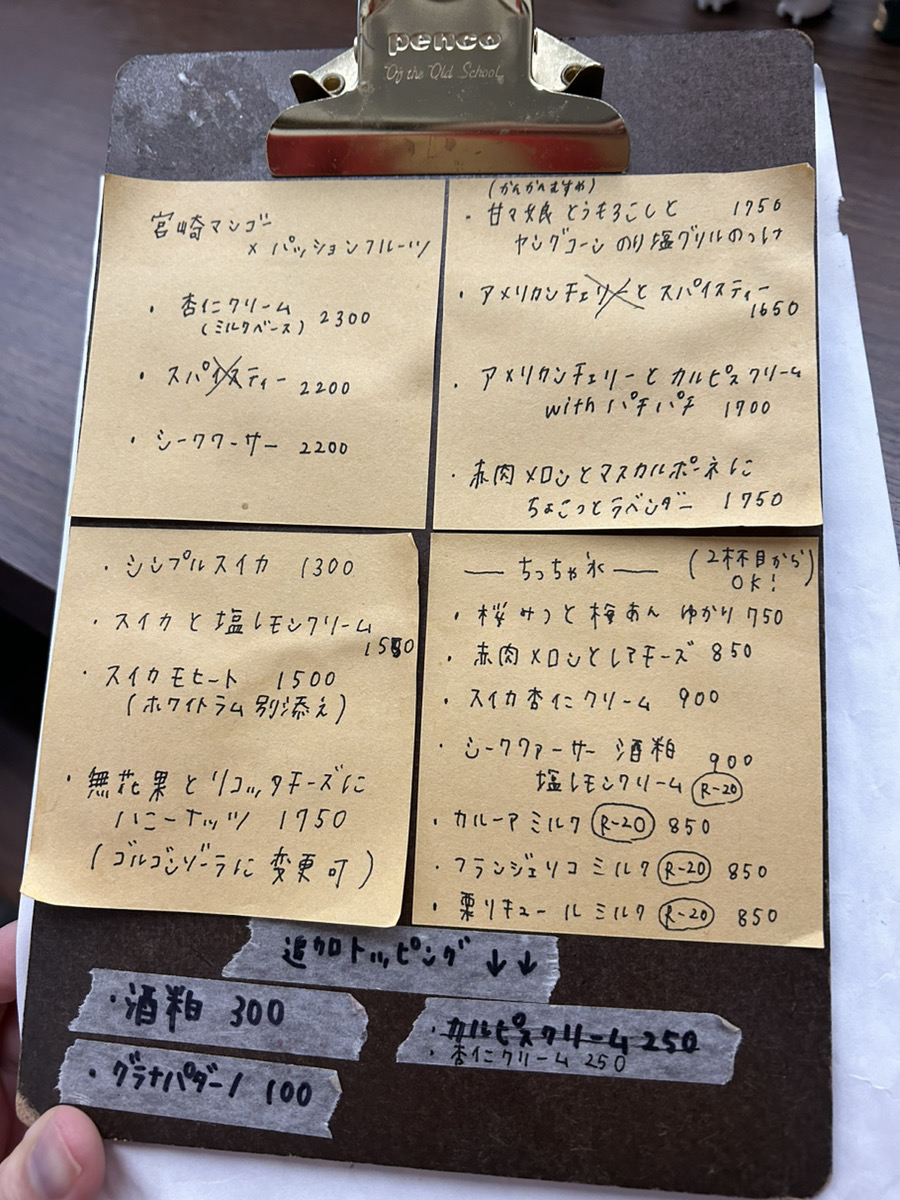 penco
Of the Old School
宮崎マンゴー
× パッションフルーツ
・杏仁クリーム 2300
(ミルクベース)
・スパイスティー 2200
・シークワーサー 2200
(かんかんむすめ)
・甘々娘 とうもろこしと 1750
ヤングコーン のり塩グリルのっけ
・アメリカンチェリーと スパイスティー
1650
・アメリカンチェリーと カルピスクリーム
with パチパチ 1700
・赤肉メロンとマスカルポーネに
ちょこっとラベンダー 1750
・シンプルスイカ 1300
・スイカと塩レモンクリーム
1550
・スイカモヒート 1500
(ホワイトラム別添え)
・無花果とリコッタチーズに
ハニーナッツ 1750
(ゴルゴンゾーラに変更可)
— ちっちゃ氷 — (2杯目から
OK!
・桜みつと梅あん ゆかり 750
・赤肉メロンとレアチーズ 850
・スイカ杏仁クリーム 900
・シークヮーサー 酒粕 900
塩レモンクリーム R-20
・カルーアミルク R-20 850
・フランジェリコミルク R-20 850
・栗リキュールミルク R-20 850
追加トッピング ↓↓
・酒粕 300
・カルピスクリーム 250
・杏仁クリーム 250
・グラナパダーノ 100